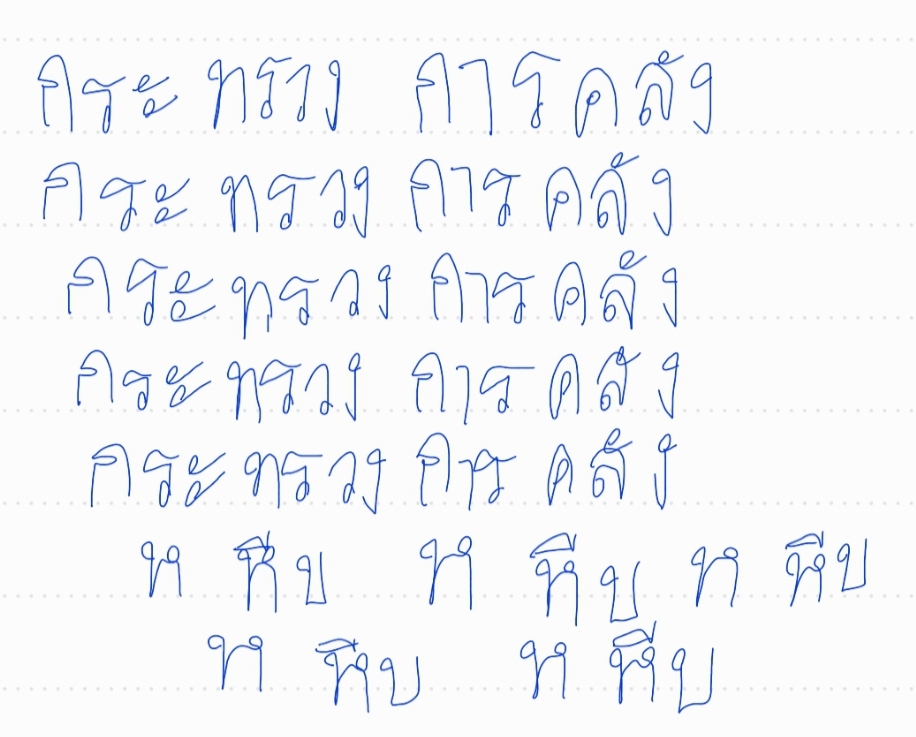 กระ ทรวง การ คลัง
กระ ทรวง การ คลัง
กระ ทรวง การ คลัง
กระ ทรวง การ คลัง
กระ ทรวง การ คลัง
ห หีบ ห หีบ ห หีบ
ห หีบ ห หีบ